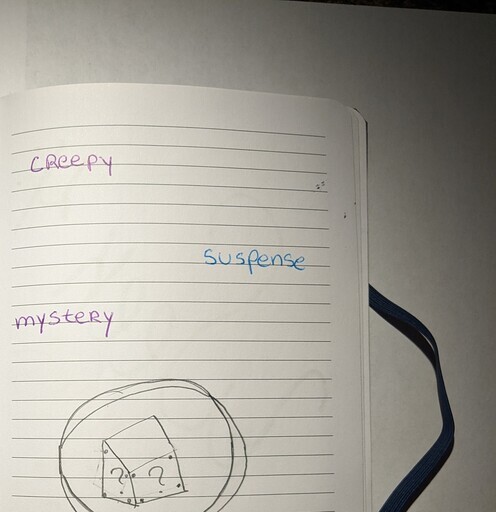 CReepy
suspense
mysteRy
? ?